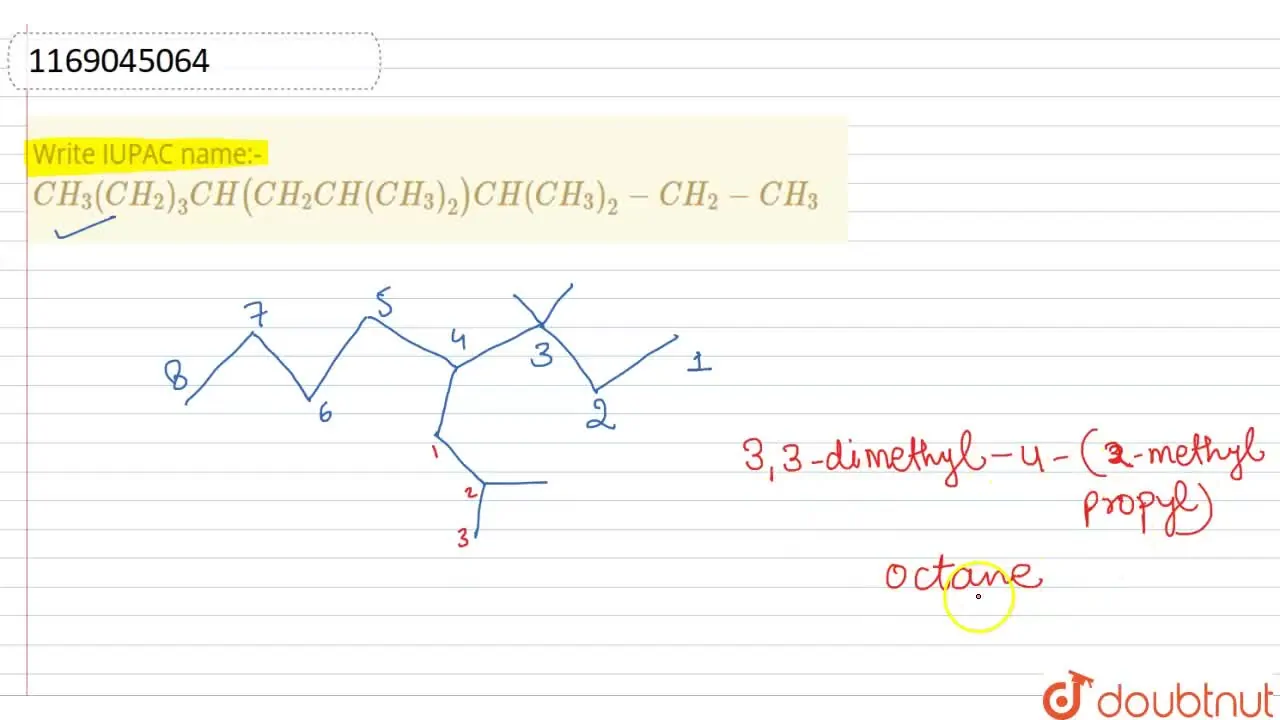 1169045064
Write IUPAC name:-
CH₃(CH₂)₃CH(CH₂CH(CH₃)₂)CH(CH₃)₂ − CH₂ − CH₃
8 7 6 5 4 3 2 1
1
2
3
3,3-dimethyl-4-(2-methyl
propyl)
octane
doubtnut